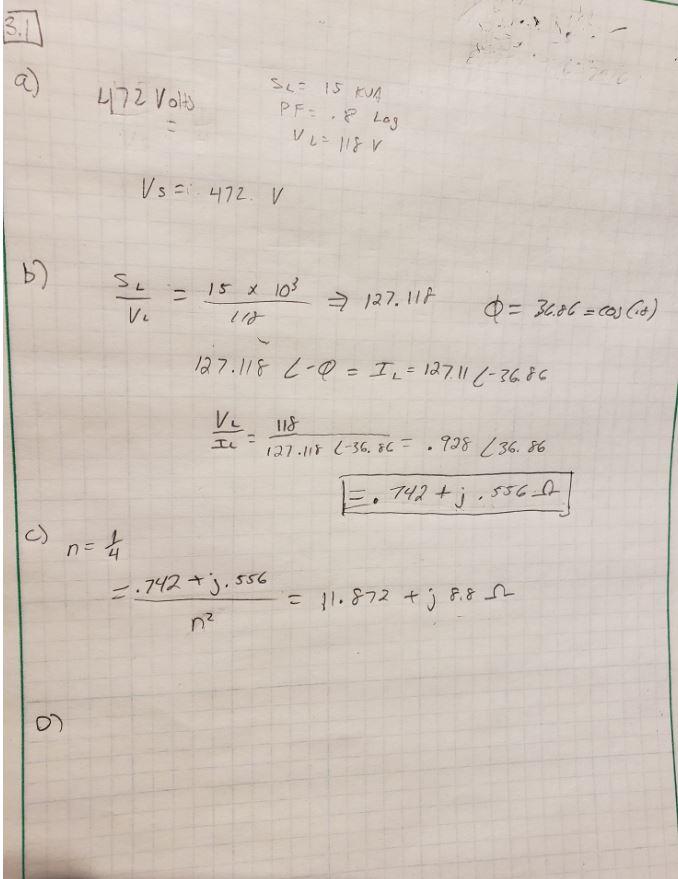 3.1
a)
472 Volts
SL = 15 KVA
PF = .8 Lag
VL = 118 V
Vs = 472. V
b)
SL/VL = 15 x 10³/118 ⇒ 127.118
Φ = 36.86 = cos(.8)
127.118 ∠-Φ = IL = 127.11 ∠-36.86
VL/IL = 118/127.118 ∠-36.86 = .928 ∠36.86
= .742 + j .556 Ω
c)
n = 1/4
= .742 + j.556/n² = 11.872 + j 8.8 Ω
D)